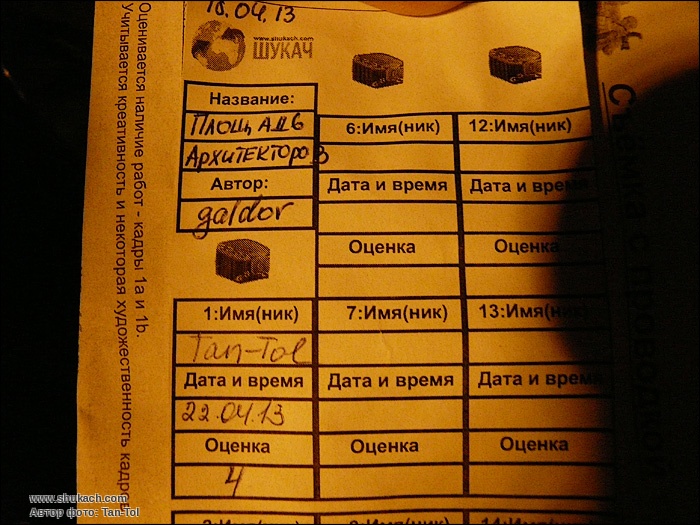 18.04.13
www.shukach.com
ШУКАЧ
Название:
ПЛОЩАДЬ
АРХИТЕКТОРОВ
Автор:
galdor
1:Имя(ник)
Tan-Tol
Дата и время
22.04.13
Оценка
4
6:Имя(ник)
Дата и время
Оценка
7:Имя(ник)
Дата и время
Оценка
12:Имя(ник)
Дата и время
Оценка
13:Имя(ник)
Дата и время
Оценка
Оценивается наличие работ - кадры 1а и 1b.
Учитывается креативность и некоторая художественность кадр
www.shukach.com
Автор фото: Tan-Tol